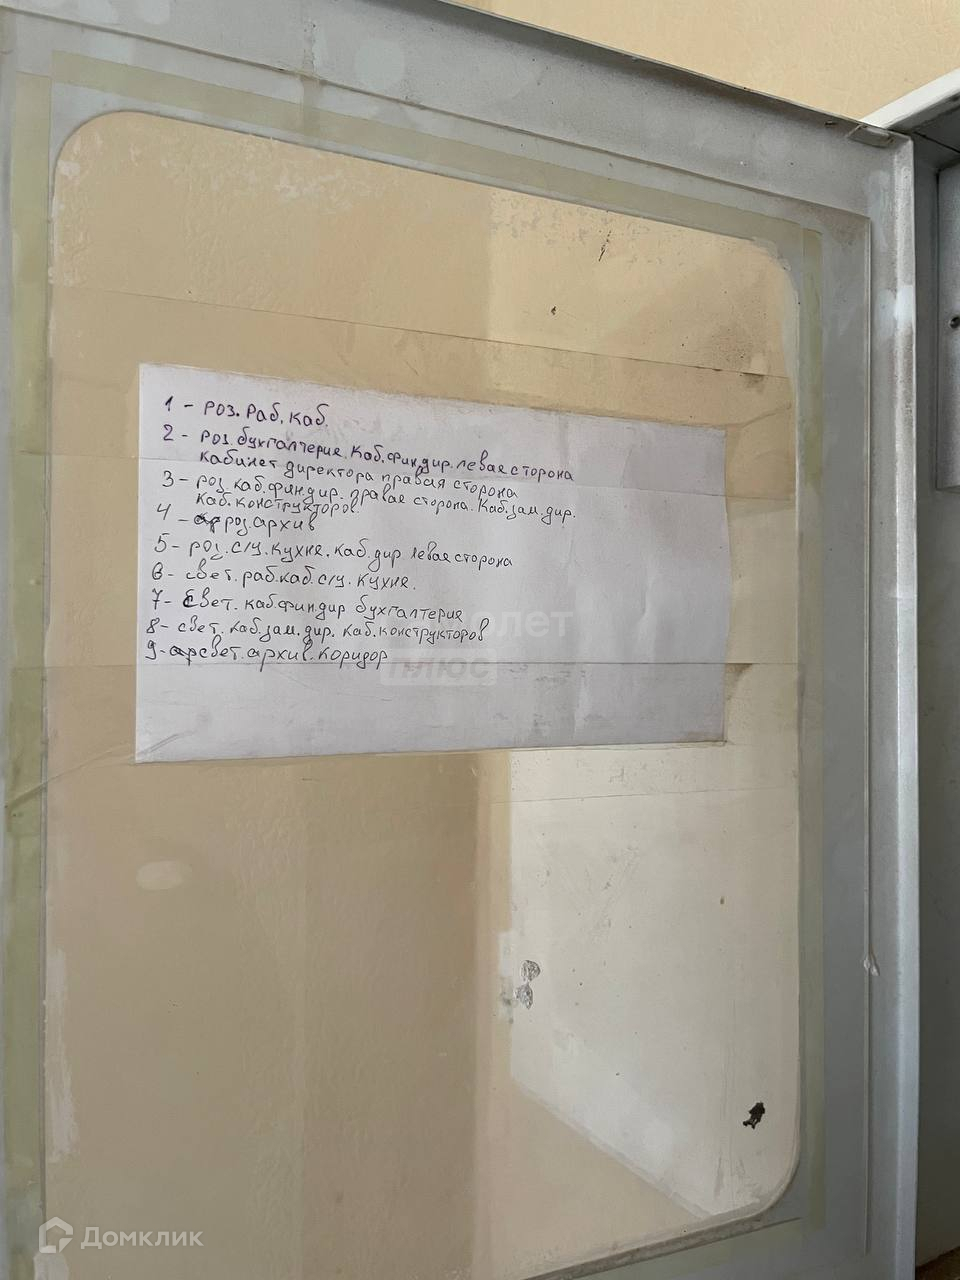 1 - роз. раб. каб.
2 - роз. бухгалтерия. каб. фин. дир. левая сторона
кабинет директора правая сторона
3 - роз. каб. фин. дир. правая сторона. каб. зам. дир.
каб. конструкторов.
4 - роз. архив
5 - роз. с/у. кухня. каб. дир левая сторона
6 - свет. раб. каб. с/у. кухня.
7 - свет. каб. фин. дир бухгалтерия
8 - свет. каб. зам. дир. каб. конструкторов
9 - свет. архив. коридор
плюс
Домклик